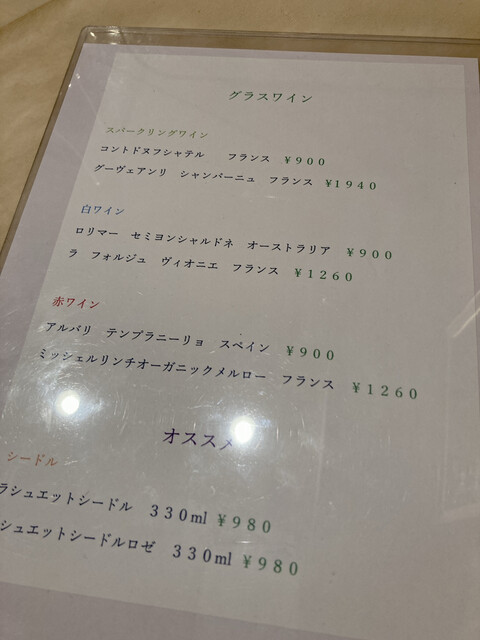 グラスワイン
スパークリングワイン
コントドヌフシャテル　フランス　¥900
グーヴェアンリ　シャンパーニュ　フランス　¥1940
白ワイン
ロリマー　セミヨンシャルドネ　オーストラリア　¥900
ラ　フォルジュ　ヴィオニエ　フランス　¥1260
赤ワイン
アルバリ　テンプラニーリョ　スペイン　¥900
ミッシェルリンチオーガニックメルロー　フランス　¥1260
オススメ
シードル
ラシュエットシードル　330ml　¥980
シュエットシードルロゼ　330ml　¥980